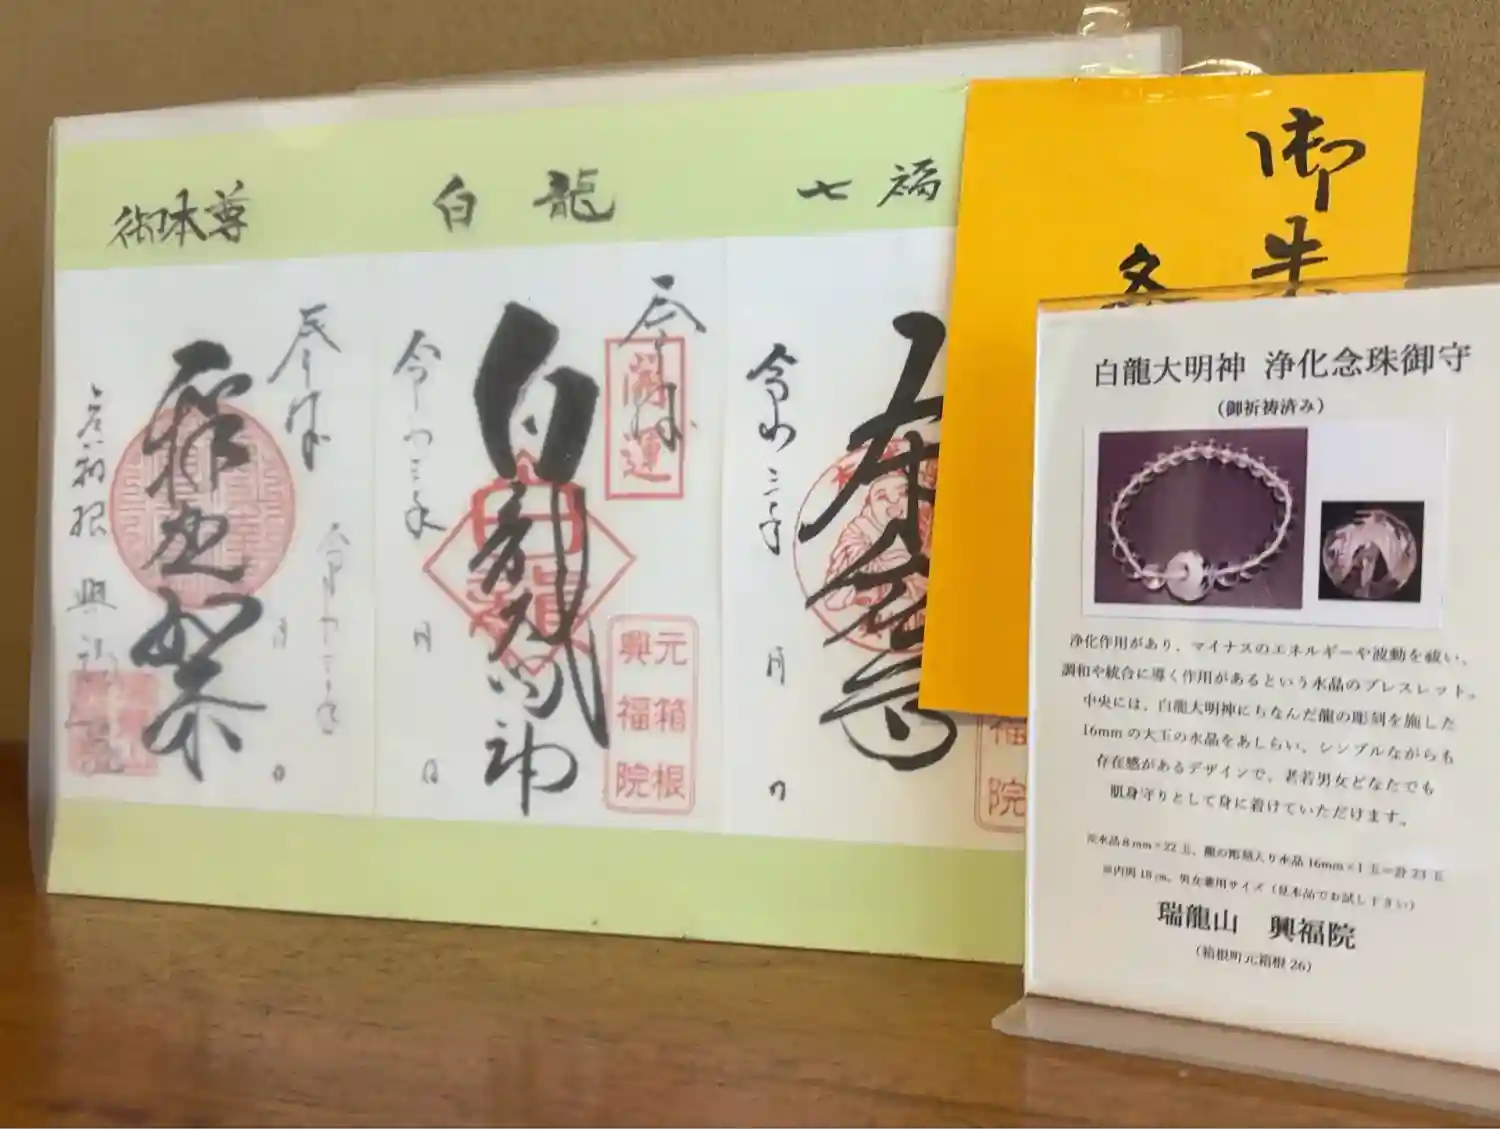 御本尊
白龍
七福
奉拝
釈迦如来
令和三年
月
日
元箱根
興福院
奉拝
開運
白龍大明神
令和三年
月
日
元箱根
興福院
布袋尊
令和三年
月
日
福
院
御朱
各
白龍大明神 浄化念珠御守
(御祈祷済み)
浄化作用があり、マイナスのエネルギーや波動を祓い、
調和や統合に導く作用があるという水晶のブレスレット。
中央には、白龍大明神にちなんだ龍の彫刻を施した
16mmの大玉の水晶をあしらい、シンプルながらも
存在感があるデザインで、老若男女どなたでも
肌身守りとして身に着けていただけます。
※水晶8mm×22玉、龍の彫刻入り水晶16mm×1玉=計23玉
※内周18cm、男女兼用サイズ(見本品でお試し下さい)
瑞龍山 興福院
(箱根町元箱根26)